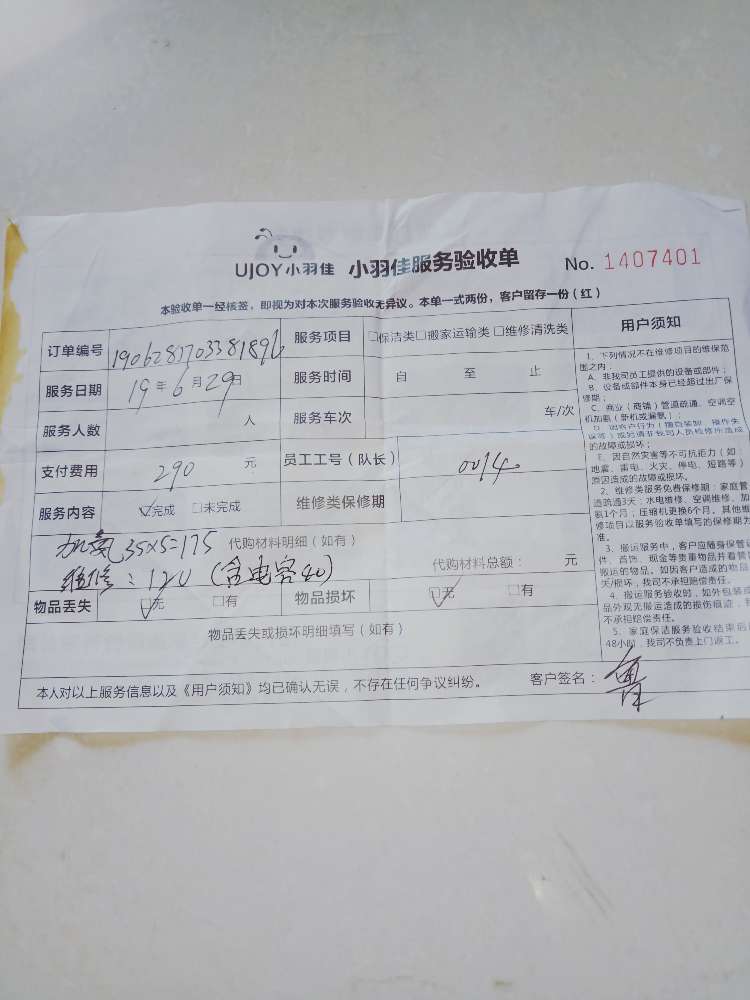 UJOY小羽佳 小羽佳服务验收单 No. 1407401
本验收单一经核签，即视为对本次服务验收无异议。本单一式两份，客户留存一份（红）
订单编号 1906287703381896 服务项目 □保洁类□搬家运输类□维修清洗类
服务日期 19年6月29日 服务时间 自 至 止
服务人数 人 服务车次 车/次
支付费用 290 元 员工工号（队长） 0014
服务内容 ☑完成 □未完成 维修类保修期
加氟35x5=175 代购材料明细（如有）
维修：120（含电容40） 代购材料总额： 元
物品丢失 ☑无 □有 物品损坏 ☑无 □有
物品丢失或损坏明细填写（如有）
本人对以上服务信息以及《用户须知》均已确认无误，不存在任何争议纠纷。 客户签名：鲁
用户须知
1、下列情况不在维修项目的维保范
围之内：
A、非我司员工提供的设备或部件；
B、设备或部件本身已经超过出厂保
修期；
C、商业（商铺）管道疏通、空调空
机加氟（新机或漏氟）；
的故障或损坏；
E、因自然灾害等不可抗拒力（如
地震、雷电、火灾、停电、短路等）
原因造成的故障或损坏。
2、维修类服务免费保修期：家庭管
道疏通3天；水电维修、空调维修、加
氟1个月；压缩机更换6个月。其他维
修项目以服务验收单填写的保修期为
准。
3、搬运服务中，客户应随身保管证
件、首饰、现金等贵重物品并看管
搬运的物品。如因客户造成的物品
丢失/损坏，我司不承担赔偿责任。
4、搬运服务验收时，如外包装或
品外观无搬运造成的损伤痕迹，我
不承担赔偿责任。
5、家庭保洁服务验收结束后
48小时，我司不负责上门返工。